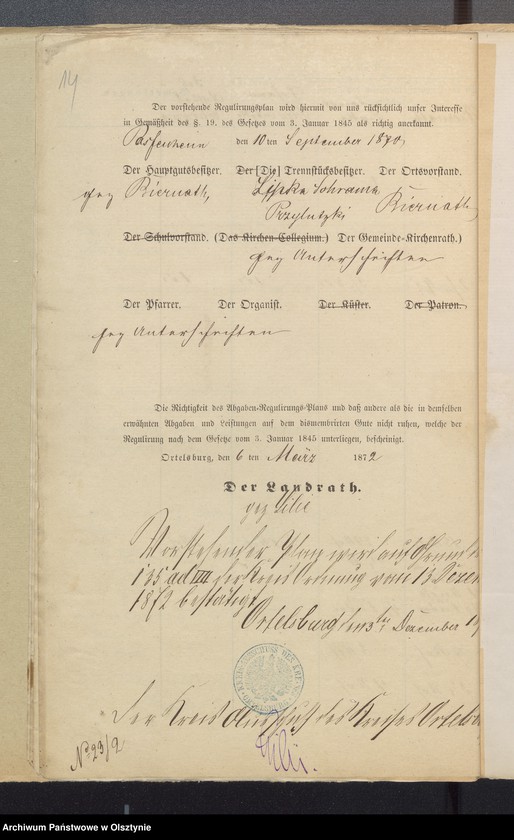 14
Der vorstehende Regulirungsplan wird hiermit von uns rücksichtlich unser Interesse
in Gemäßheit des §. 19. des Gesetzes vom 3. Januar 1845 als richtig anerkannt.
Passenheim den 10 ten September 1870
Der Hauptgutsbesitzer. Der [Die] Trennstücksbesitzer. Der Ortsvorstand.
gez Biernath, Lipka Schramm Biernath
Przylutzki
Der Schulvorstand. (Das Kirchen-Collegium.) Der Gemeinde-Kirchenrath.)
gez Unterschriften
Der Pfarrer. Der Organist. Der Küster. Der Patron.
gez Unterschriften
Die Richtigkeit des Abgaben-Regulirungs-Plans und daß andere als die in demselben
erwähnten Abgaben und Leistungen auf dem dismembrirten Gute nicht ruhen, welche der
Regulirung nach dem Gesetze vom 3. Januar 1845 unterliegen, bescheinigt.
Ortelsburg, den 6 ten März 1872
Der Landrath.
gez
Vorstehender Plan wird auf Grund
135 ad VIII der Kreis Ordnung vom 13 Dezem
1872 bestätigt
Ortelsburg den 3ten December 1
Der Kreis Ausschuß des Kreises Ortelsb
No 23/2
Archiwum Państwowe w Olsztynie